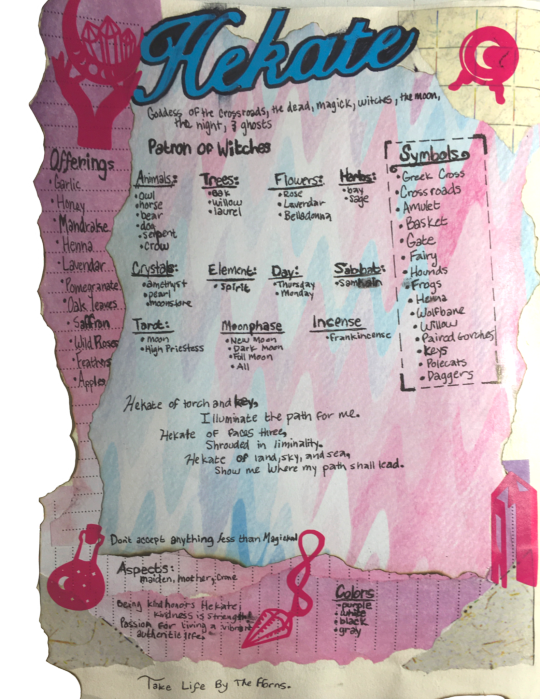 Hekate
Goddess of the crossroads, the dead, magick, witches, the moon,
the night, & ghosts
Patron of Witches
Offerings
Garlic
•Honey
•Mandrake
•Henna
•Lavendar
•Pomegranate
•Oak leaves
•Saffron
•Wild Roses
•Feathers
•Apples
Animals:
•owl
•horse
•bear
•dog
•serpent
•Crow
Trees:
•oak
•willow
•laurel
Flowers:
•Rose
•Lavendar
•Belladonna
Herbs:
•bay
•sage
Symbols
•Greek Cross
•Crossroads
•Amulet
•Basket
•Gate
•Fairy
•Hounds
•Frogs
•Henna
•Wolfbane
•Willow
•Paired torches
•Keys
•Polecats
•Daggers
Crystals:
•amethyst
•pearl
•moonstone
Element:
•Spirit
Day:
•Thursday
•Monday
Sabbat:
•Samhain
Tarot:
•moon
•High Priestess
Moonphase
•New Moon
•Dark Moon
•Full Moon
•All
Incense
•Frankincense
Hekate of torch and key,
Illuminate the path for me.
Hekate of faces three,
Shrouded in liminality.
Hekate of land, sky, and sea,
Show me where my path shall lead.
Don't accept anything less than Magickal
Aspects:
maiden, mother, crone
Being kind honors Hekate
kindness is strength
Passion for living a vibrant
authentic life.
Colors
•purple
•white
•black
•gray
Take Life By The Horns.